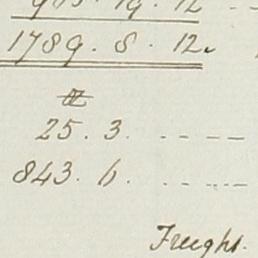 1789. 8. 12.
25. 3. ----
843. 6. ----
Freight.